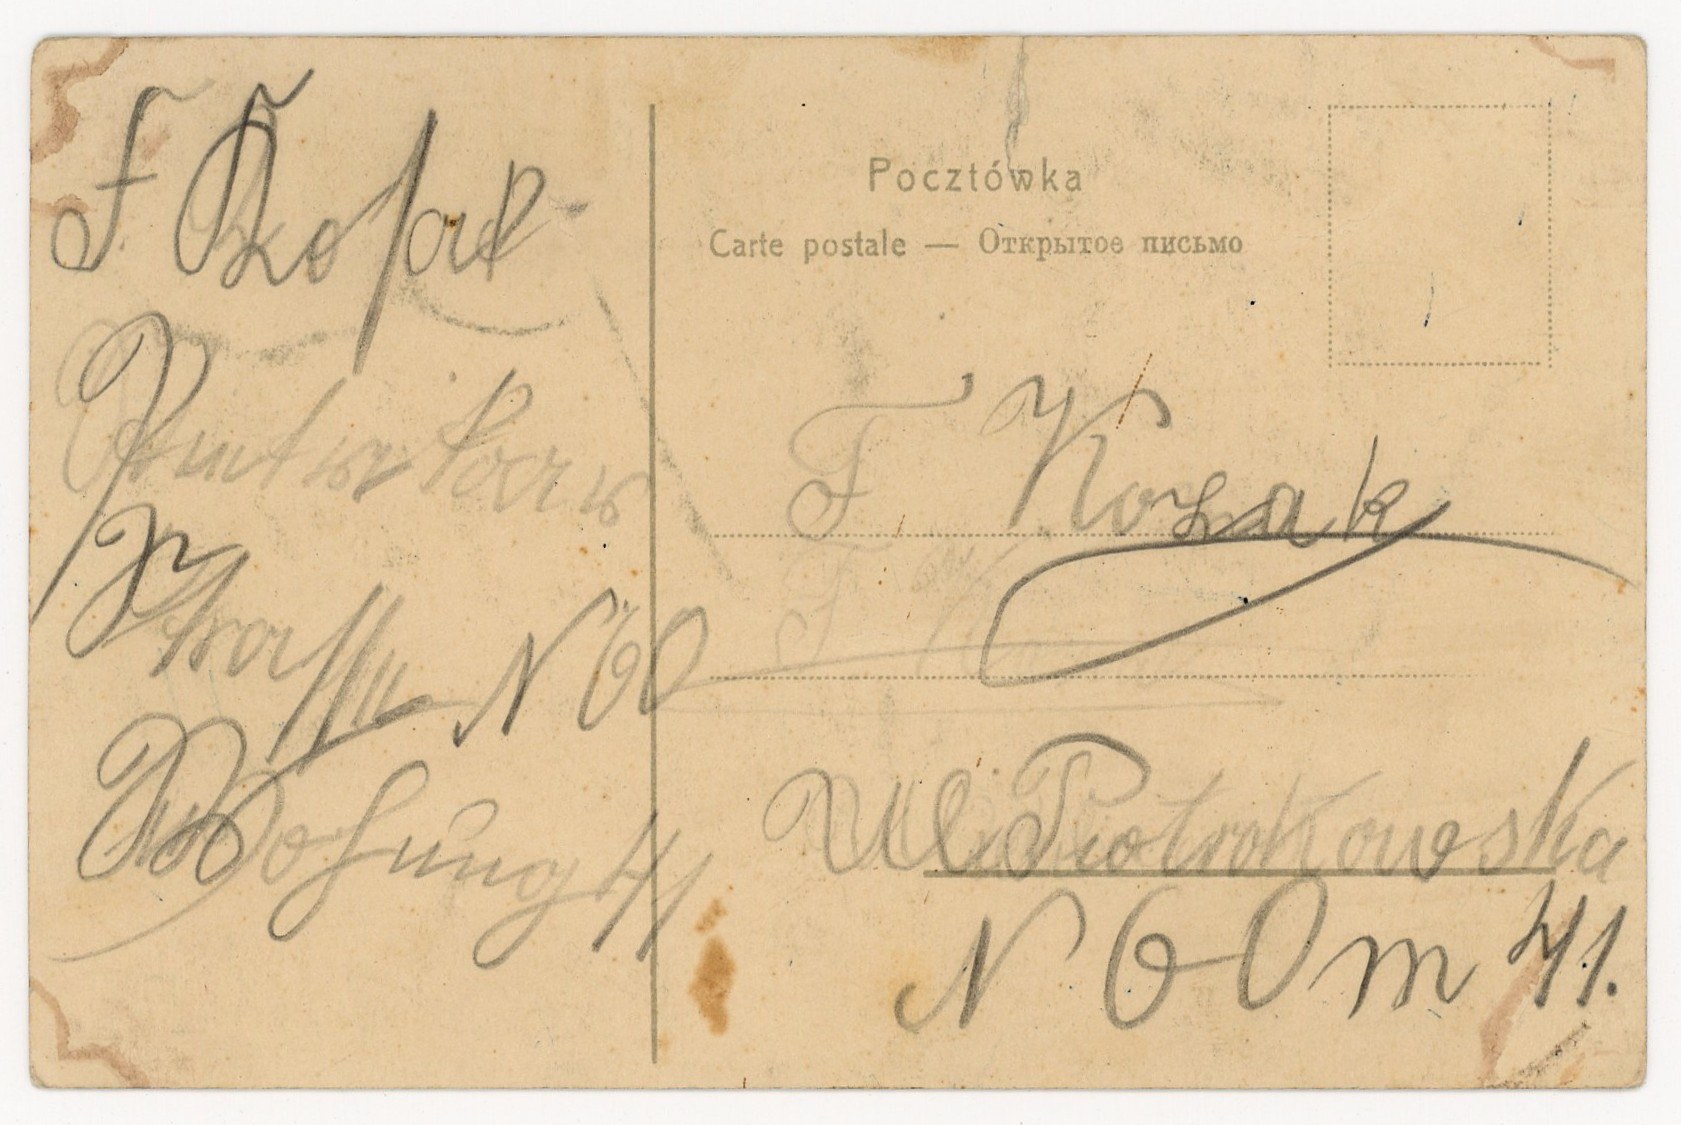 F. Kosak
Strasse N 60
Wohnung 41
Pocztówka
Carte postale — Открытое письмо
F Kozak
F
Ul Piotrkowska
N 60 m 41.